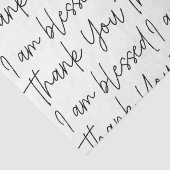 thank
I am blessed
Thank You
I am blessed I a
thank You